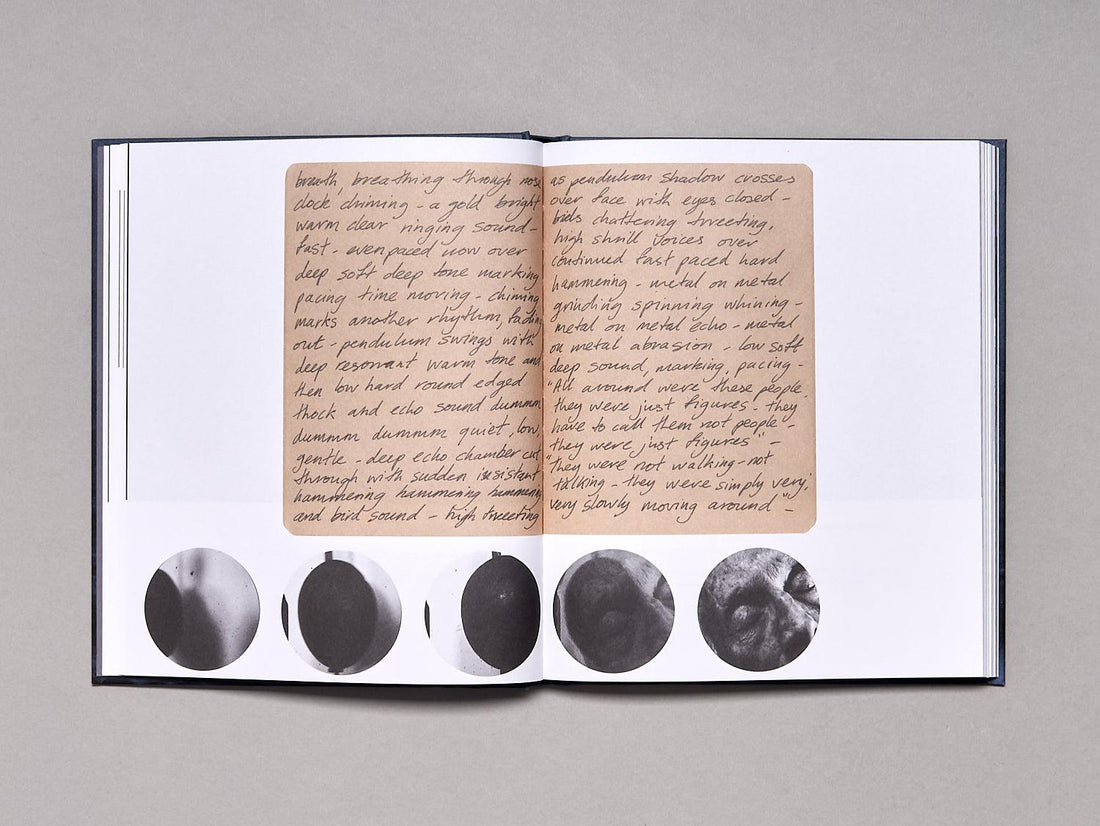 breath, breathing through nose
clock chiming - a gold bright
warm clear ringing sound -
fast - even paced now over
deep soft deep tone marking
pacing time moving - chiming
marks another rhythm, fading
out - pendulum swings with
deep resonant warm tone and
then low hard round edged
thock and echo sound dummm
dummm dummum quiet, low
gentle - deep echo chamber cut
through with sudden insistant
hammering hammering hammering
and bird sound - high tweeting
as pendulum shadow crosses
over face with eyes closed -
birds chattering tweeting,
high shrill voices over
continued fast paced hard
hammering - metal on metal
grinding spinning whining -
metal on metal echo - metal
on metal abrasion - low soft
deep sound, marking, pacing -
"All around were these people,
they were just figures - they
have to call them not people -
they were just figures" -
"they were not walking - not
talking - they were simply very,
very slowly moving around" -